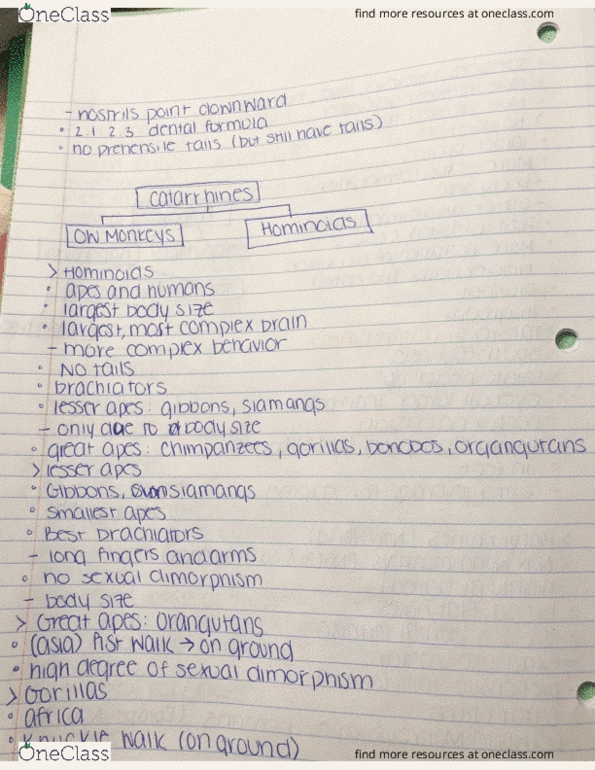 OneClass
find more resources at oneclass.com
- nostrils point downward
• 2.1.2.3 dental formula
• no prehensile tails (but still have tails)
catarrhines
OW Monkeys
Hominoids
> Hominoids
• apes and humans
• largest body size
• largest, most complex brain
- more complex behavior
• No tails
• brachiators
• lesser apes: gibbons, siamangs
- only due to body size
• great apes: chimpanzees, gorillas, bonobos, organgutans
> lesser apes
• Gibbons, siamangs
• smallest apes
• Best brachiators
- long fingers and arms
• no sexual dimorphism
- body size
> Great apes: orangutans
• (asia) fist walk → on ground
• high degree of sexual dimorphism
> Gorillas
• africa
• knuckle walk (on ground)
OneClass
find more resources at oneclass.com